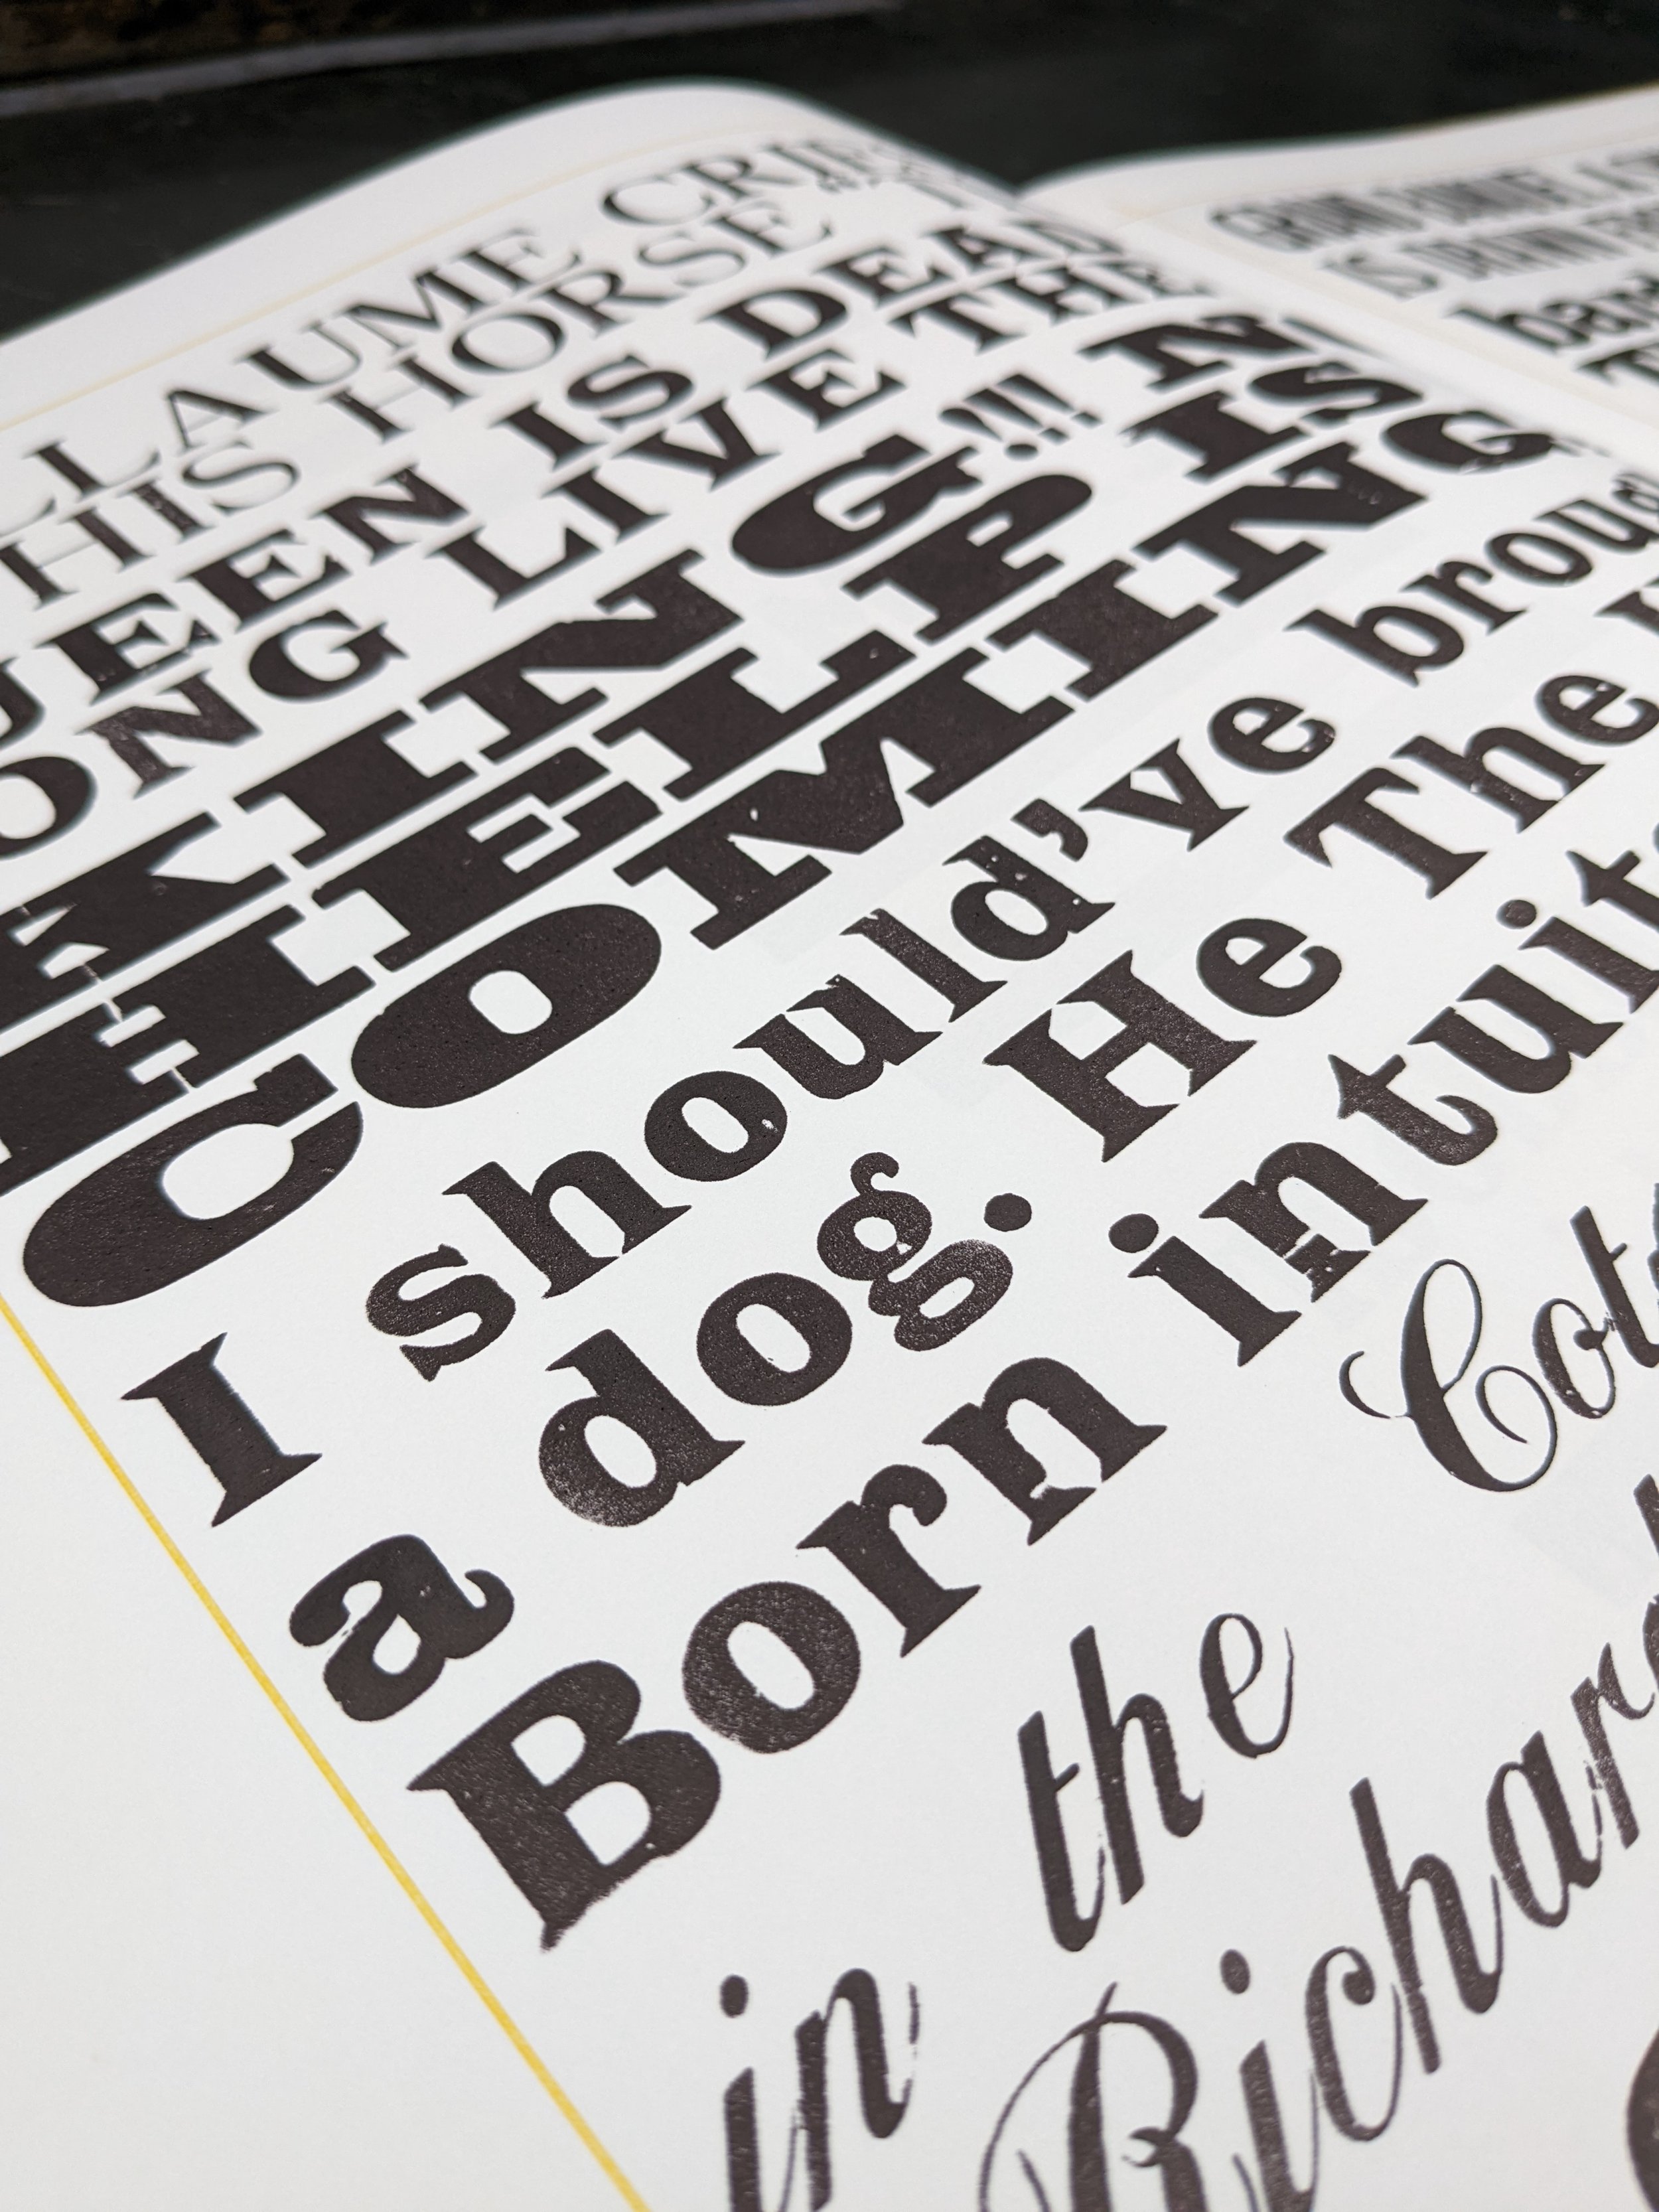 LLAUME CRIES
HIS HORSE
UEEN IS DEAD
ONG LIVE THE
KING!!!
HELP IS
COMING
I should've
a dog. He The
Born intuit
in the Cot
Richard
IS DRAWN